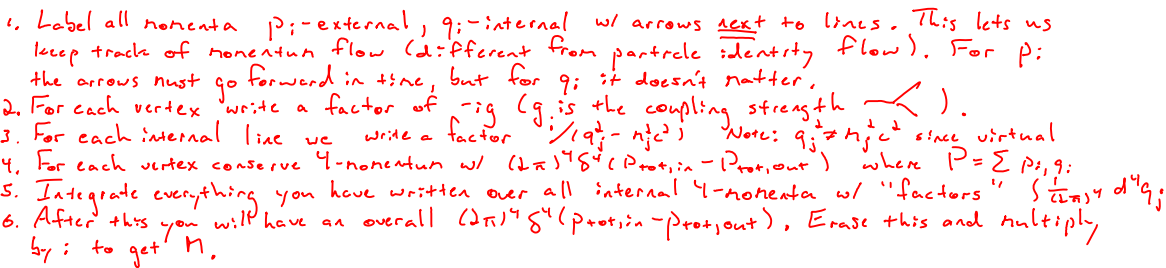 1. Label all momenta pᵢ-external, qᵢ-internal w/ arrows next to lines. This lets us
keep track of momentum flow (different from particle identity flow). For pᵢ
the arrows must go forward in time, but for qᵢ it doesn't matter.
2. For each vertex write a factor of -ig (g is the coupling strength ).
3. For each internal line we write a factor i/(qⱼ² - mⱼ²c²) Note: qⱼ² ≠ mⱼ²c² since virtual
4. For each vertex conserve 4-momentum w/ (2π)⁴δ⁴(Ptot,in - Ptot,out) where P = Σ pᵢ,qᵢ
5. Integrate everything you have written over all internal 4-momenta w/ "factors" ∫ 1/(2π)⁴ d⁴qⱼ
6. After this you will have an overall (2π)⁴ δ⁴(ptot,in - ptot,out). Erase this and multiply
by i to get M.